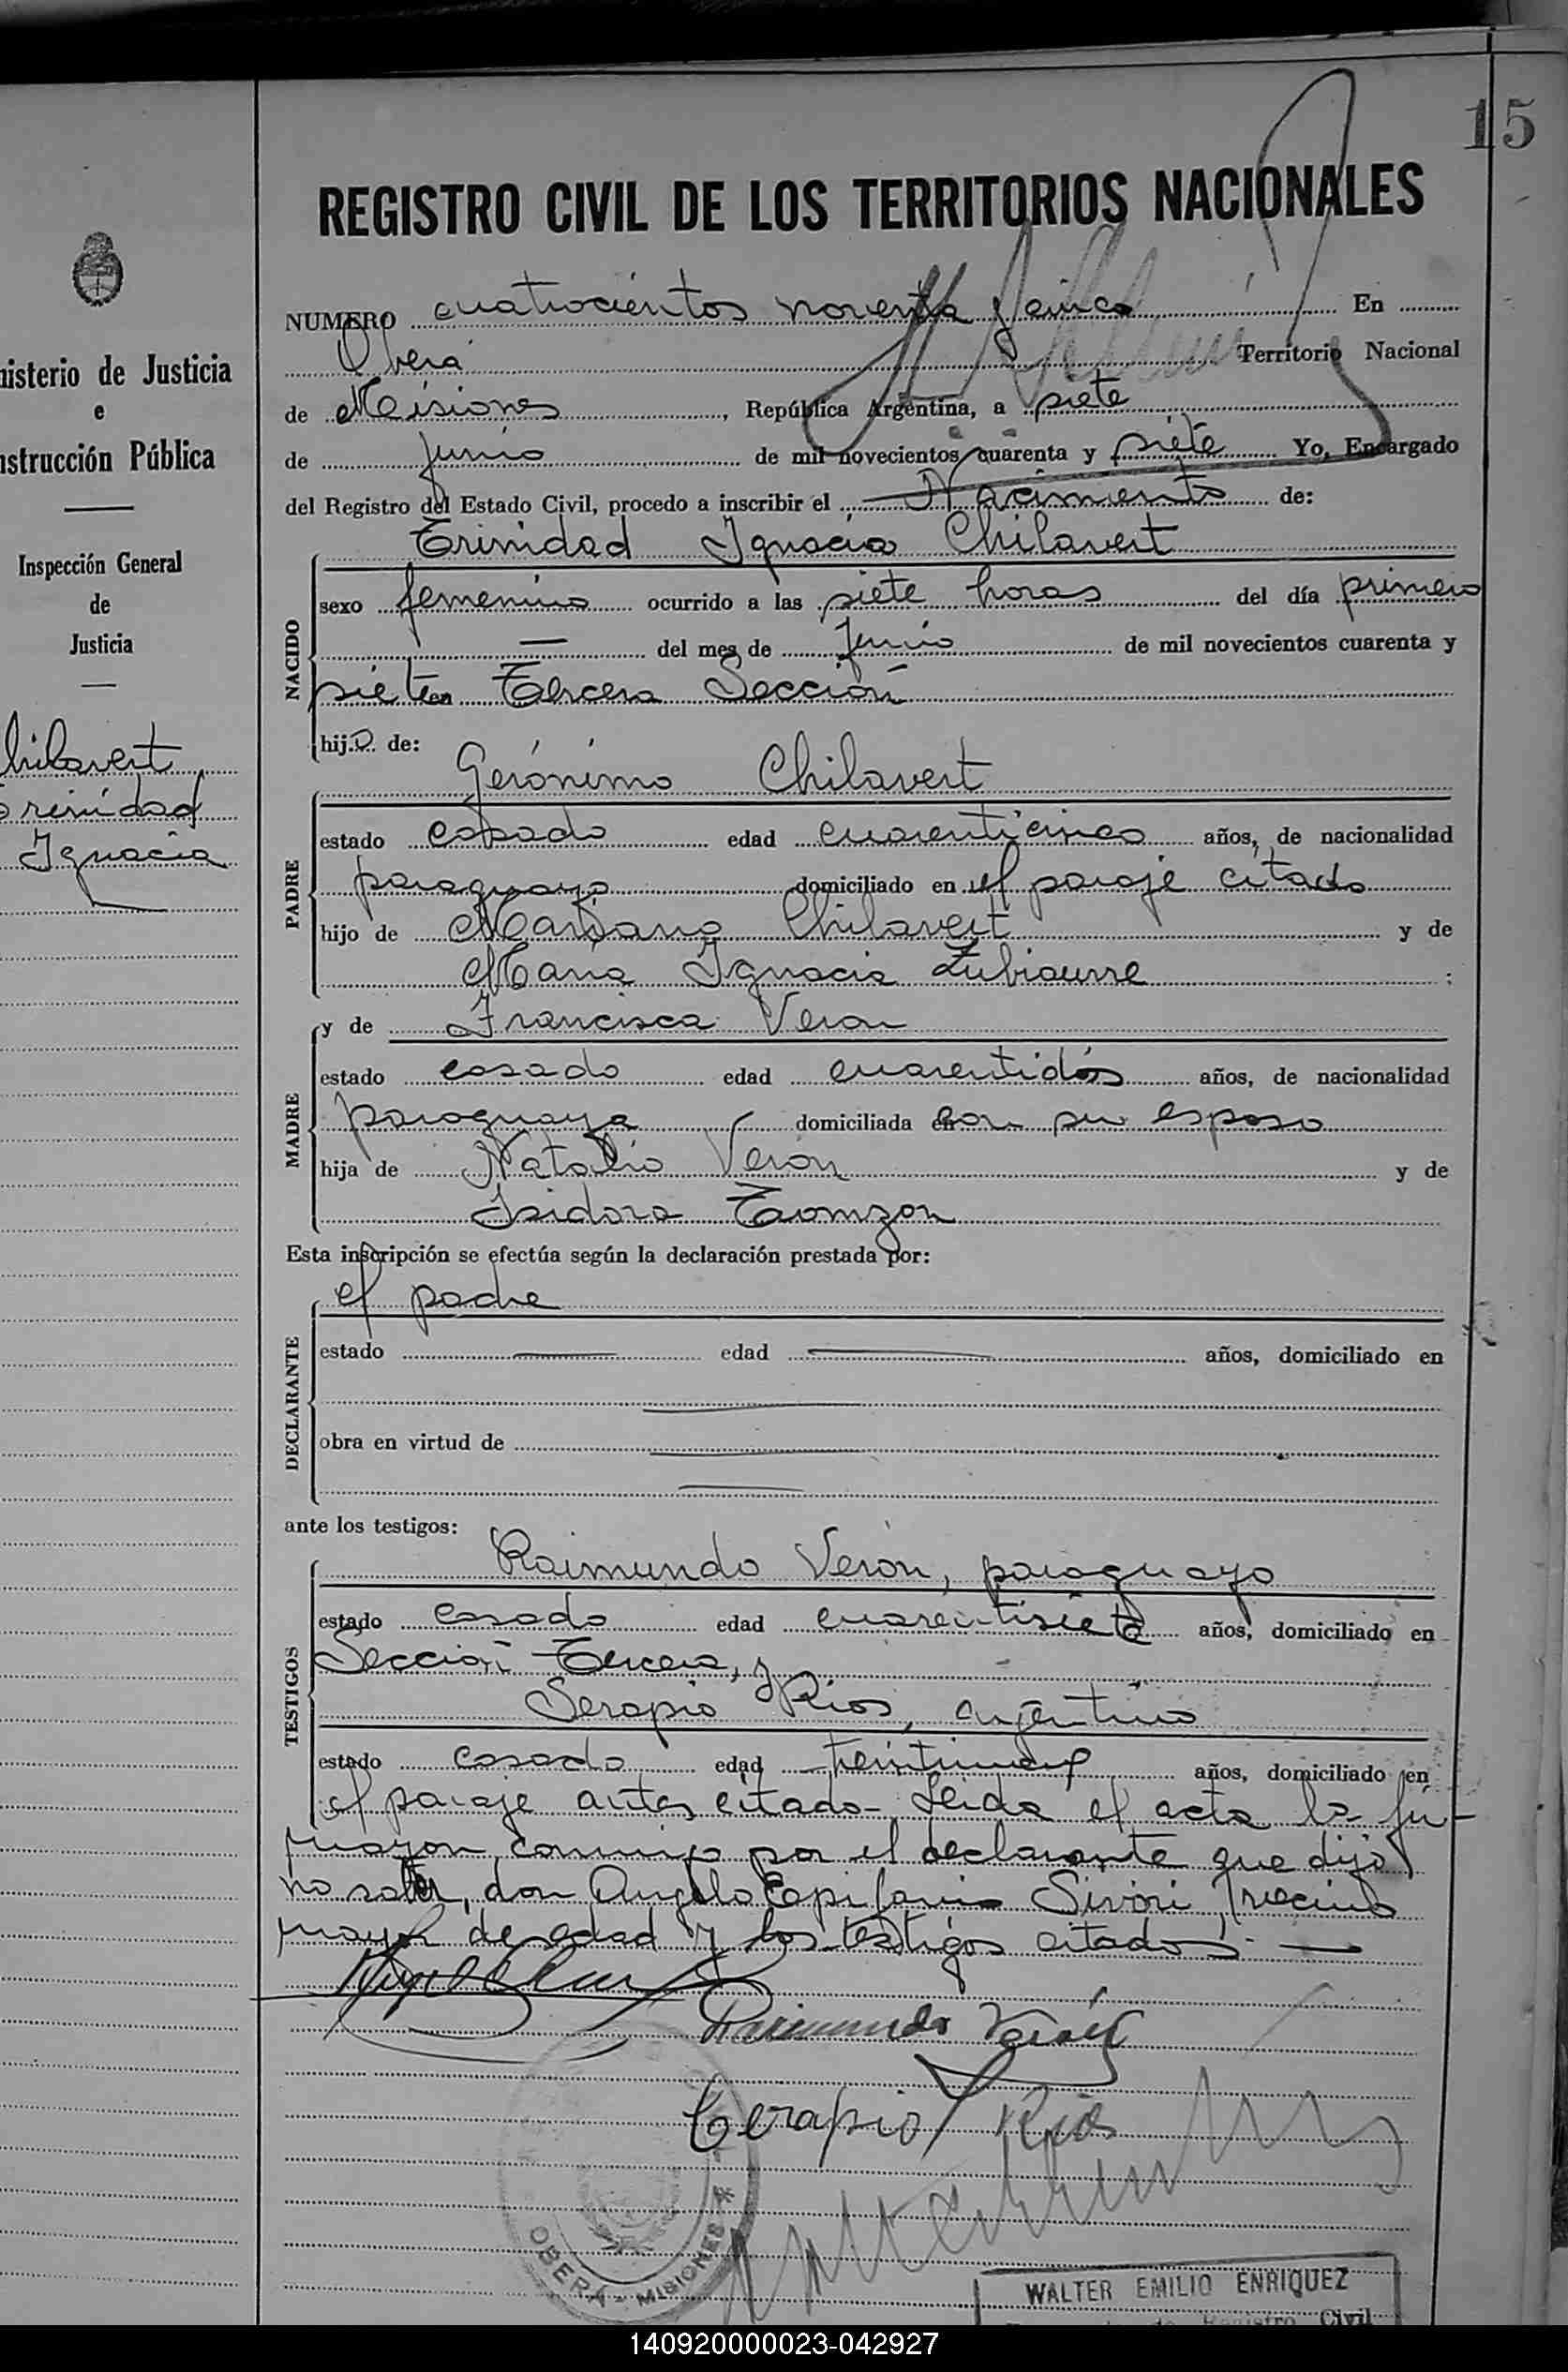 15
REGISTRO CIVIL DE LOS TERRITORIOS NACIONALES
NUMERO cuatrocientos noventa y cinco En
Oberá Territorio Nacional
de Misiones, República Argentina, a siete
de junio de mil novecientos cuarenta y siete Yo, Encargado
del Registro del Estado Civil, procedo a inscribir el Nacimiento de:
Trinidad Ignacia Chilavert
NACIDO
sexo femenino ocurrido a las siete horas del día primero
— del mes de junio de mil novecientos cuarenta y
siete en Tercera Sección
hij.a de:
Gerónimo Chilavert
PADRE
estado casado edad cuarenticinco años, de nacionalidad
paraguayo domiciliado en el paraje citado
hijo de Mariano Chilavert y de
María Ignacia Zubiaurre ;
y de Francisca Veron
MADRE
estado casado edad cuarentidós años, de nacionalidad
paraguaya domiciliada en con su esposo
hija de Natalio Verón y de
Isidora Tomzon
Esta inscripción se efectúa según la declaración prestada por:
el padre
DECLARANTE
estado — edad — años, domiciliado en
obra en virtud de
ante los testigos:
Raimundo Verón, paraguayo
TESTIGOS
estado casado edad cuarentisiete años, domiciliado en
Sección Tercera, y
Serapio Rios, argentino
estado casado edad treintinueve años, domiciliado en
el paraje antes citado - Leida el acta la fir-
maron conmigo por el declarante que dijo
no saber, don Angelo Epifanio Sivori, vecino
mayor de edad y los testigos citados. —
Raimundo Verón
Cerapio Rios
OBERA - MISIONES
WALTER EMILIO ENRIQUEZ
Registro Civil
nisterio de Justicia
e
nstrucción Pública
Inspección General
de
Justicia
hilavert
rinidad
Ignacia
140920000023-042927